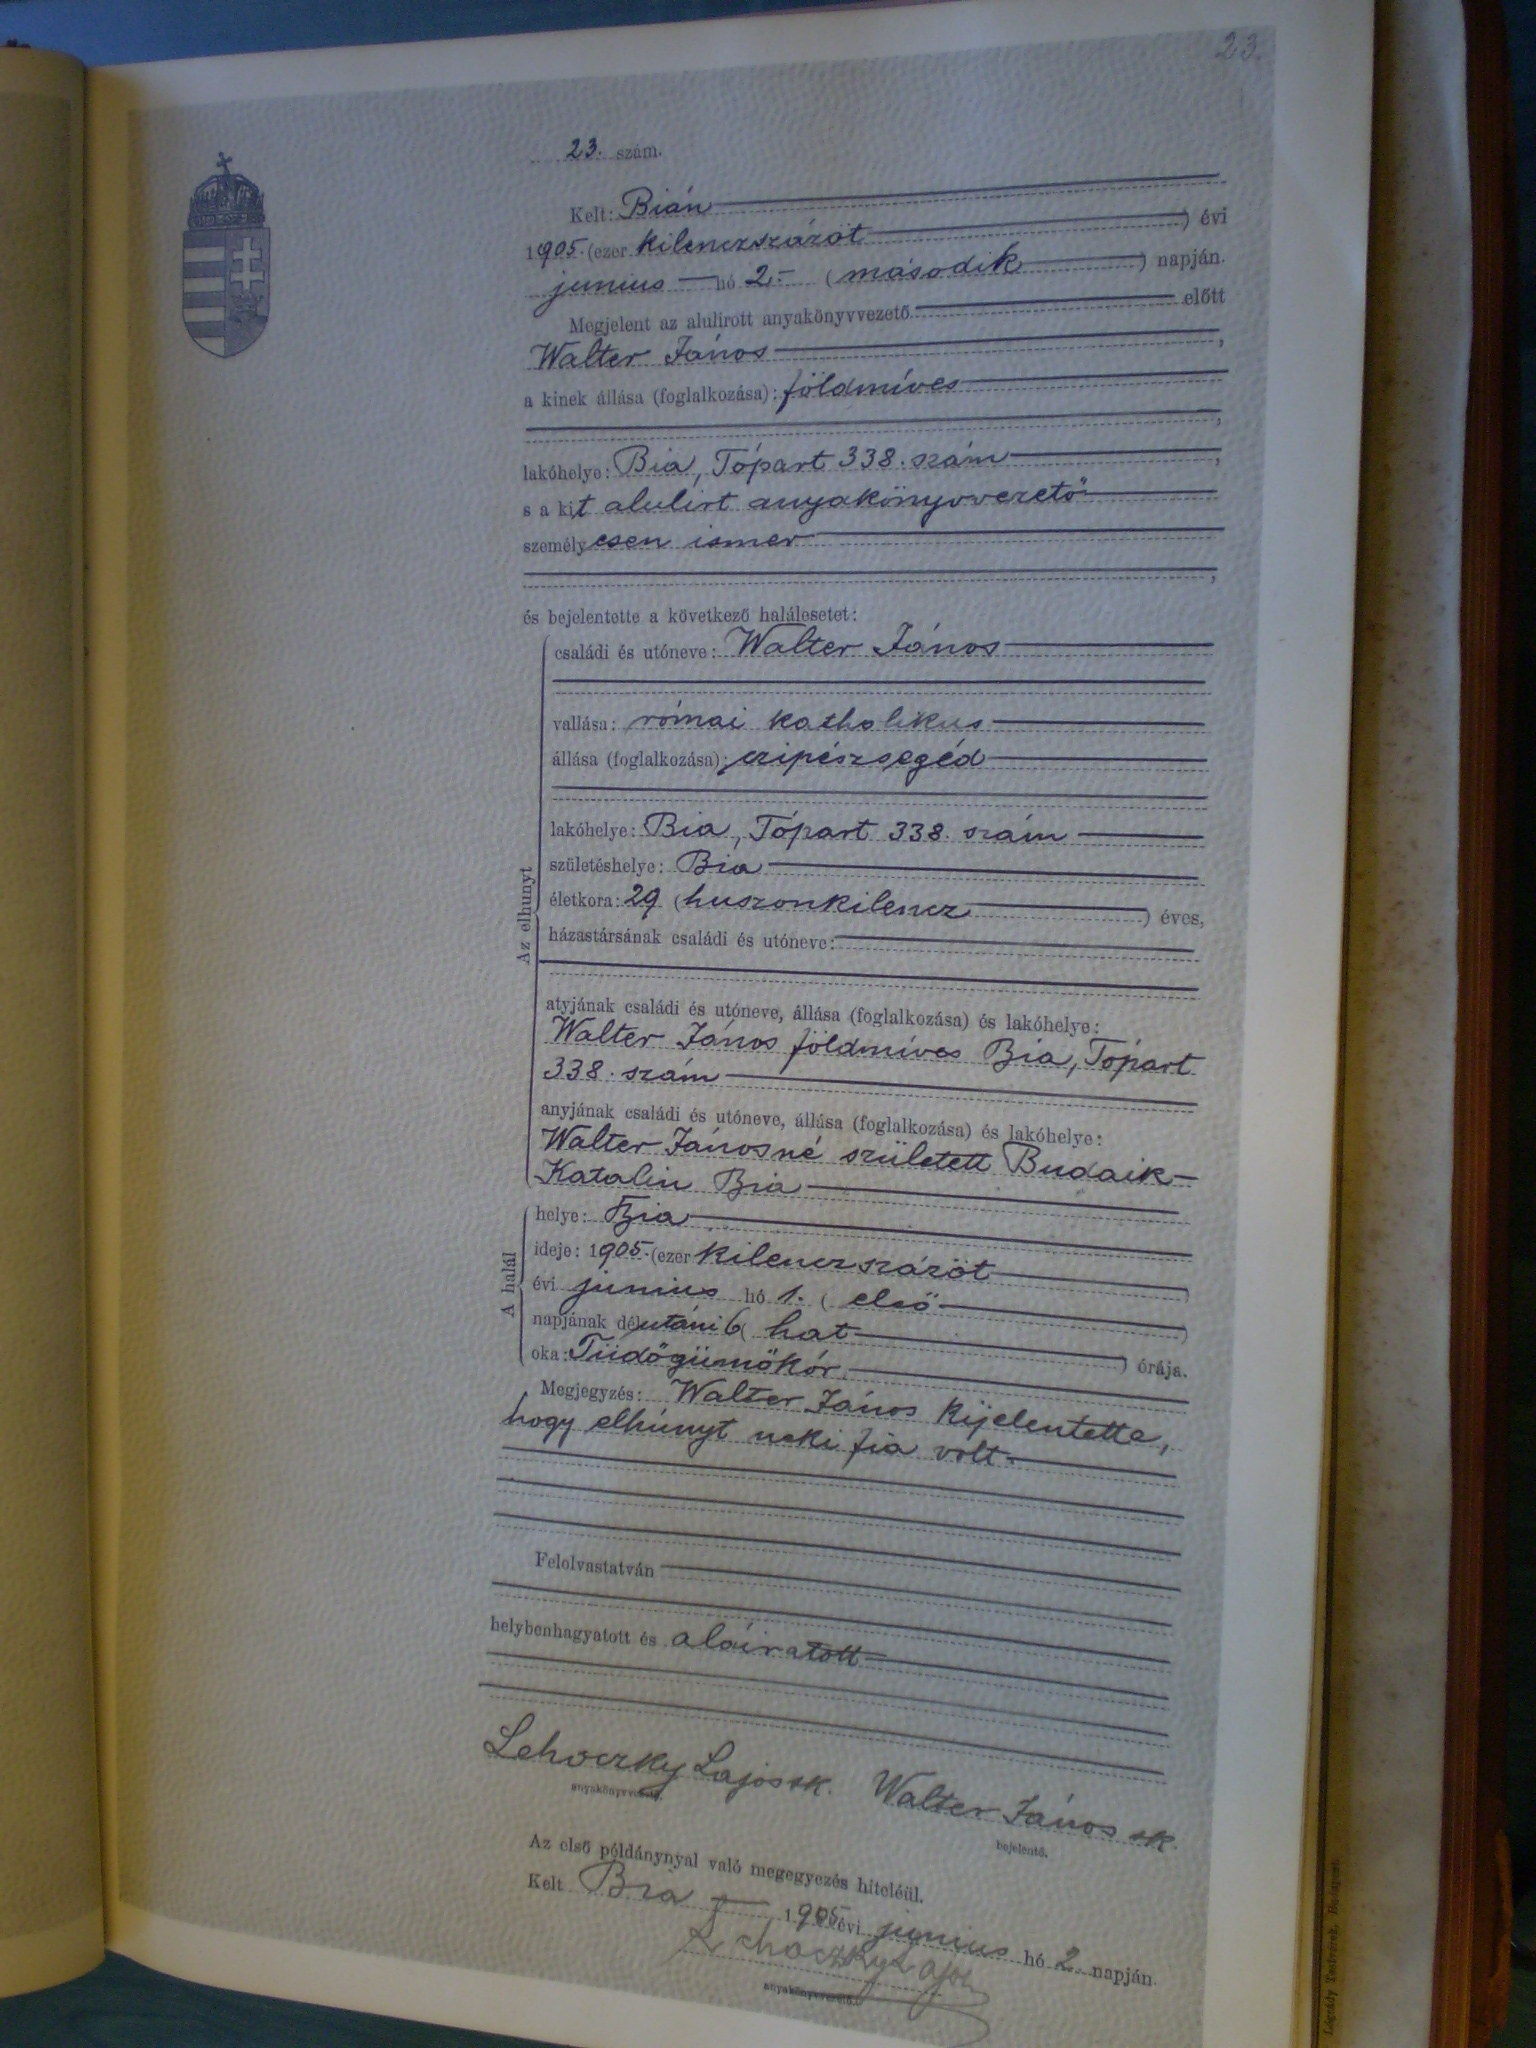 23.
23. szám.
Kelt: Bián
1905. (ezer kilenczszázöt ) évi
junius hó 2. (második ) napján.
Megjelent az alulirott anyakönyvvezető előtt
Walter János ,
a kinek állása (foglalkozása): földmíves
,
lakóhelye: Bia, Tópart 338. szám ,
s a kit alulirt anyakönyvvezető
személyesen ismer
,
és bejelentette a következő halálesetet:
Az elhunyt
családi és utóneve: Walter János
vallása: római katholikus
állása (foglalkozása): czipészsegéd
lakóhelye: Bia, Tópart 338. szám
születéshelye: Bia
életkora: 29 (huszonkilencz ) éves,
házastársának családi és utóneve:
atyjának családi és utóneve, állása (foglalkozása) és lakóhelye:
Walter János földmíves Bia, Tópart
338. szám
anyjának családi és utóneve, állása (foglalkozása) és lakóhelye:
Walter Jánosné született Budaik
Katalin Bia
A halál
helye: Bia
ideje: 1905. (ezer kilenczszázöt )
évi junius hó 1. (első )
napjának délutáni 6 (hat ) órája.
oka: Tüdőgümőkór
Megjegyzés: Walter János kijelentette,
hogy elhúnyt neki fia volt.
Felolvastatván
helybenhagyatott és aláiratott
Lehoczky Lajos sk. Walter János sk.
anyakönyvvezető. bejelentő.
Az első példánynyal való megegyezés hiteléül.
Kelt Bia 1905 évi junius hó 2. napján
Lehoczky Lajos
anyakönyvvezető.
Légrády Testvérek, Budapest.